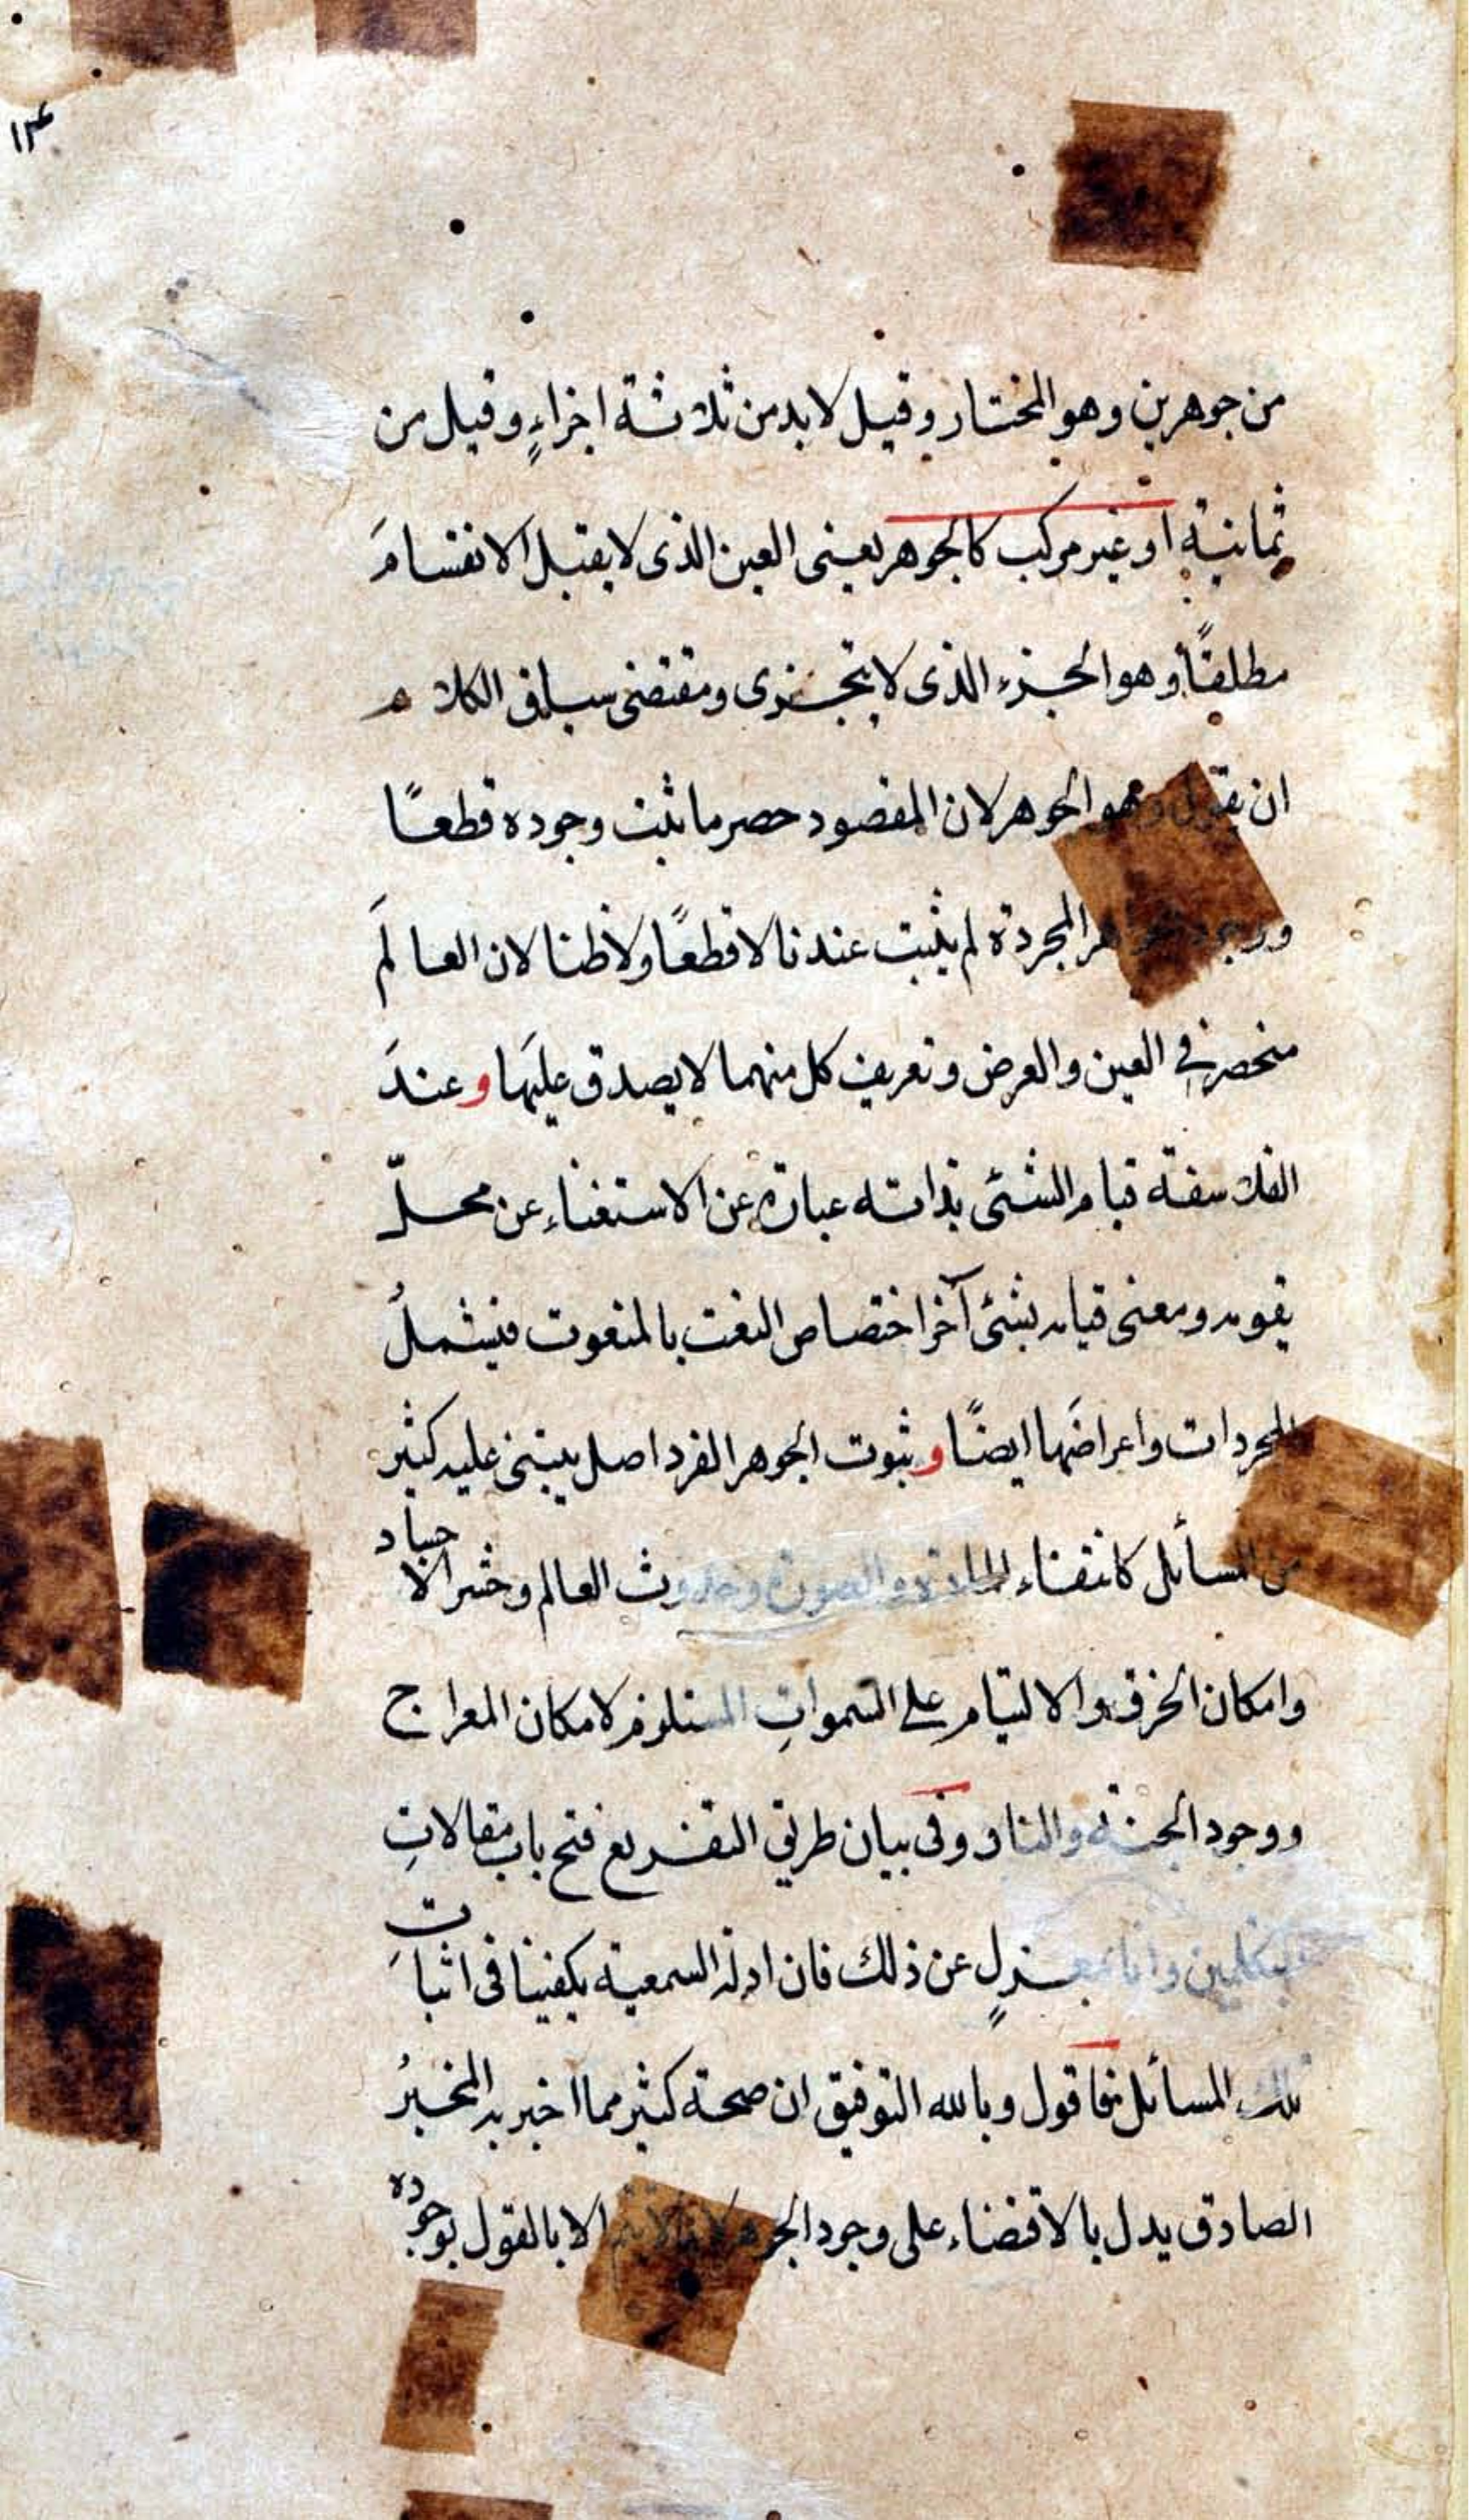 ١٣
من جوهرين وهو المختار وقيل لا بد من ثلاثة اجزاءٍ وقيل من
ثمانية او غير مركب كالجوهر يعنى العين الذى لا يقبل الانقسامَ
مطلقًا وهو الجزء الذى لا يتجزى ومقتضى سياق الكلام
ان يقول وهو الجوهر لان المقصود حصر ما ثبت وجوده قطعًا
ووجود الجواهر المجردة لم يثبت عندنا لا قطعًا ولا ظنا لان العالَم
منحصر في العين والعرض وتعريف كل منهما لا يصدق عليَها و عندَ
الفلاسفة قيام الشئى بذاته عبارة عن الاستغناء عن محلّ
يقومه ومعنى قيامه بشئى آخر اختصاص النعت بالمنعوت فيشملُ
المجردات واعراضَها ايضًا و ثبوت الجوهر الفرد اصل يبتنى عليه كثير
من المسائل كانتفاء المادة والصورة وحدوث العالم وحشر الاجساد
وامكان الخرق والالتيام على السمواتِ المستلزم لامكان المعراج
ووجود الجنة والنار وفى بيان طريق التفريع فتح باب مقالاتِ
المتكلمين وانا بمعزلٍ عن ذلك فان ادلة السمعية يكفينا فى اثبات
تلك المسائل فاقول وبالله التوفيق ان صحة كثير مما اخبر به المخبرُ
الصادق يدل بالاقتضاء على وجود الجوهر لانها لا يتم الا بالقول بوجوده